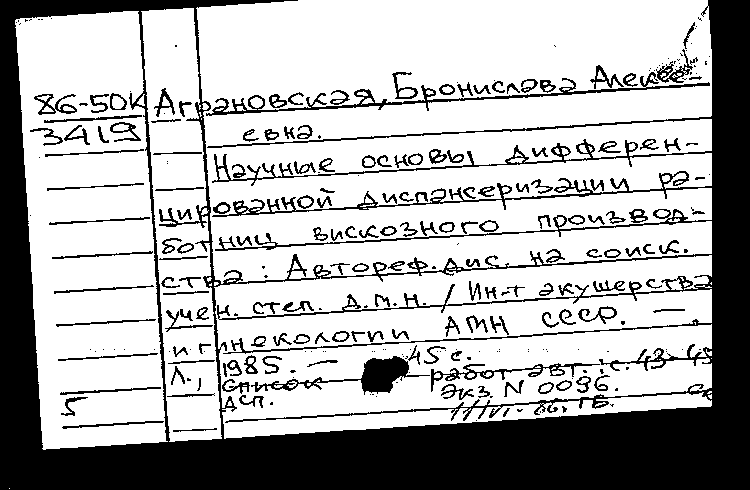 86-50К Аграновская, Бронислава Алексе-
3419 евна.
Научные основы дифферен-
цированной диспансеризации ра-
ботниц вискозного производ-
ства : Автореф. дис. на соиск.
учен. степ. д.м.н. / Ин-т акушерства
и гинекологии АМН СССР. —
Л., 1985. — 45 с.
Список работ авт. : с. 43-45
ДСП. Экз N 0096.
5 11/VI-86. ГБ.